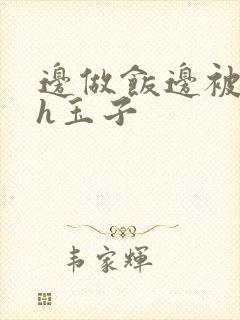 邊做飯邊被
h玉子
韦家輝